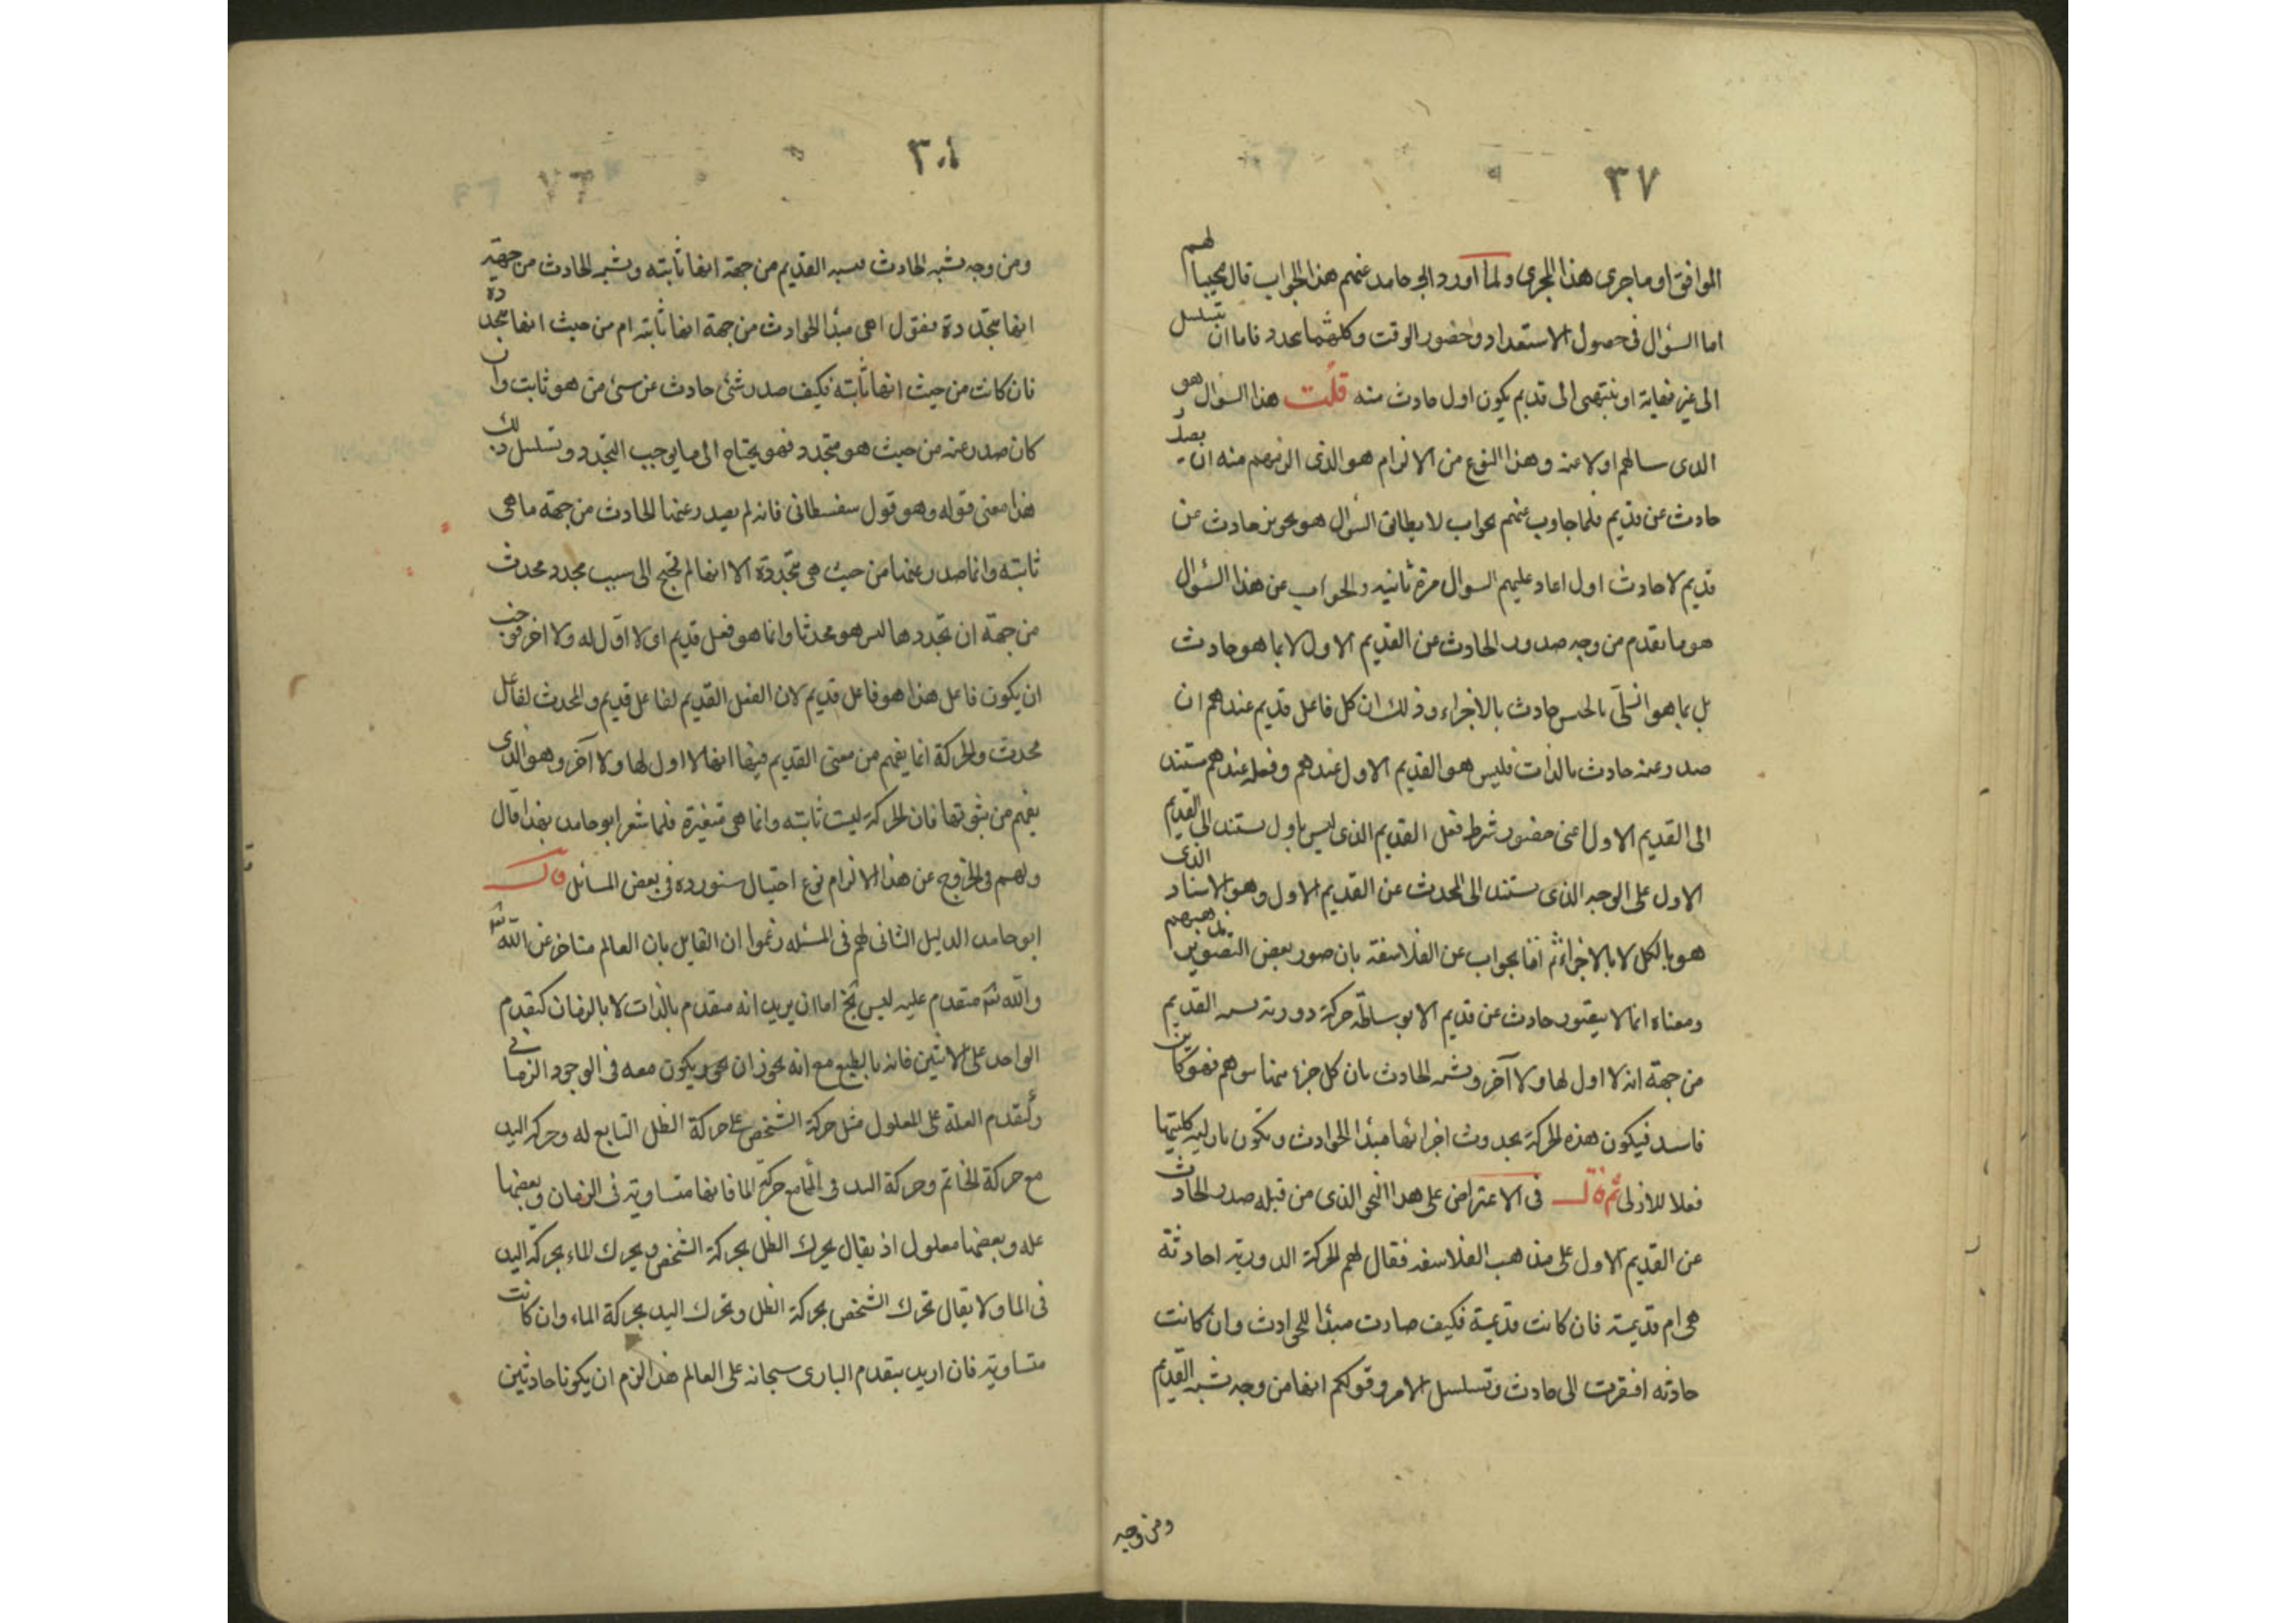 ٣٧
الموافق او ماجرى هذا المجرى ولما اورد ابو حامد عنهم هذا الجواب قال مجيبا لهم
اما السؤال فى حصول الاستعداد وحضور الوقت وكلما يتجدد فاما ان تتسلسل
الى غير نهاية او ينتهى الى قديم يكون اول حادث منه قلت هذا السوال هو
الذى سالهم اولا عنه وهذا النوع من الالزام هو الذى الزمهم منه ان يصدر
حادث عن قديم فلما جاوب عنهم بجواب لا يطابق السؤال هو تجويز حادث عن
قديم لا حادث اول اعاد عليهم السوال مرة ثانيه والجواب عن هذا السؤال
هو ما تقدم من وجه صدور الحادث عن القديم الاول لا بما هو حادث
بل بما هو ازلى بالجنس حادث بالاجزاء وذلك ان كل فاعل قديم عندهم ان
صدر عنه حادث بالذات فليس هو القديم الاول عندهم وفعله عندهم مستند
الى القديم الاول اعنى حضور شرط فعل القديم الذى ليس باول يستند الى القديم
الاول على الوجه الذى يستند الى المحدث عن القديم الاول وهو الاسناد الذى
هو بالكل لا بالاجزاء ثم اتى بجواب عن الفلاسفة بان صور بعض التصوير مذهبهم
ومعناه انما لا يتصور حادث عن قديم الا بوساطة حركة دورية تشبه القديم
من جهة انه لا اول لها ولا آخر وتشبه الحادث بان كل جزء منها يتوهم فهو كاين
فاسد فيكون هذه الحركة بحدوث اجزائها مبدأ الحوادث وتكون بازليه كليتها
فعلا للازلى ثم قال فى الاعتراض على هذا النحو الذى من قبله صدر الحادث
عن القديم الاول على مذهب الفلاسفه فقال لهم الحركة الدورية احادثة
هى ام قديمة فان كانت قديمة فكيف صارت مبدأ للحوادث وان كانت
حادثه افتقرت الى حادث وتسلسل الامر وقولكم انها من وجه تشبه القديم
ومن وجه
٣٠١
ومن وجه تشبه الحادث تشبه القديم من جهة انها ثابته وتشبه الحادث من جهة
انها متجددة فنقول اهى مبدأ الحوادث من جهة انها ثابته ام من حيث انها متجددة
فان كانت من حيث انها ثابته فكيف صدر شئ حادث عن شئ من هو ثابت وان
كان صدر عنه من حيث هو متجدد فهو يحتاج الى ما يوجب التجدد وتسلسل ذلك
هذا معنى قوله وهو قول سفسطانى فانه لم يصدر عنها الحادث من جهة ما هى
ثابته وانما صدر عنها من حيث هى متجددة الا انها لم تحتج الى سبب مجدد محدث
من جهة ان تجددها ليس هو محدثا وانما هو فعل قديم اى لا اول له ولا اخر فوجب
ان يكون فاعل هذا هو فاعل قديم لان الفعل القديم لفاعل قديم والمحدث لفاعل
محدث والحركة انما يفهم من معنى القديم فيها انها لا اول لها ولا آخر وهو الذى
يفهم من ثبوتها فان الحركة ليست ثابته وانما هى متغيرة فلما شعر ابو حامد بهذا قال
ولهم فى الخروج عن هذا الالزام نوع احتيال سنورده فى بعض المسائل قال
ابو حامد الدليل الثانى لهم فى المسئله زعموا ان القايل بان العالم متاخر عن الله
والله متقدم عليه ليس يخ اما ان يريد انه متقدم بالذات لا بالزمان كتقدم
الواحد على الاثنين فانه بالطبع مع انه يجوز ان يكون معه فى الوجود الزمانى
وكتقدم العلة على المعلول مثل حركة الشخص على حركة الظل التابع له وحركة اليد
مع حركة الخاتم وحركة اليد فى الماء مع حركة الما فانها متساوية فى الزمان وبعضها
عله وبعضها معلول اذ يقال يحرك الظل بحركة الشخص ويحرك الماء بحركة اليد
فى الما ولا يقال تحرك الشخص بحركة الظل وتحرك اليد بحركة الماء وان كانت
متساوية فان اريد بتقدم البارى سبحانه على العالم هذا لزم ان يكونا حادثين